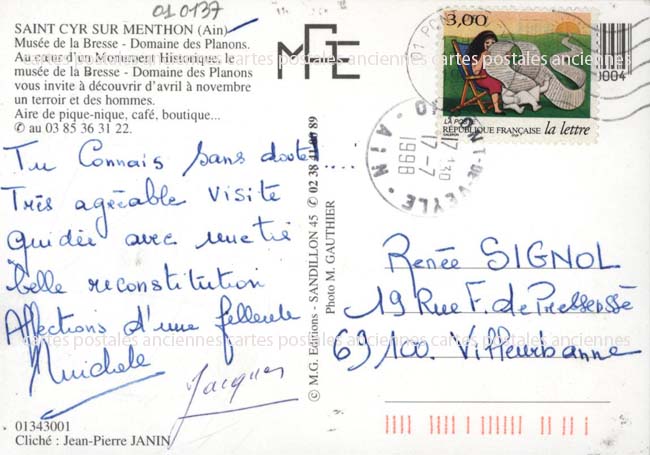 010137
SAINT CYR SUR MENTHON (Ain)
Musée de la Bresse - Domaine des Planons.
Au cœur d'un Monument Historique, le
musée de la Bresse - Domaine des Planons
vous invite à découvrir d'avril à novembre
un terroir et des hommes.
Aire de pique-nique, café, boutique...
✆ au 03 85 36 31 22.
MGE
3,00
LA POSTE
RÉPUBLIQUE FRANÇAISE la lettre
01 PONT-DE-VEYLE
17 H30
17-7
1998
AIN
0004
cartes postales anciennes cartes postales anciennes cartes postales anciennes
Tu Connais sans doute!....
Très agréable visite
guidée avec
belle reconstitution
Affections d'une
Muichele
Jacques
© M.G. Editions - SANDILLON 45 ✆ 02 38 41 00 89
Photo M. GAUTHIER
Renée SIGNOL
19 Rue F. de Pressensé
69100. Villeurbanne
cartes postales anciennes cartes postales anciennes cartes postales anciennes
01343001
Cliché : Jean-Pierre JANIN